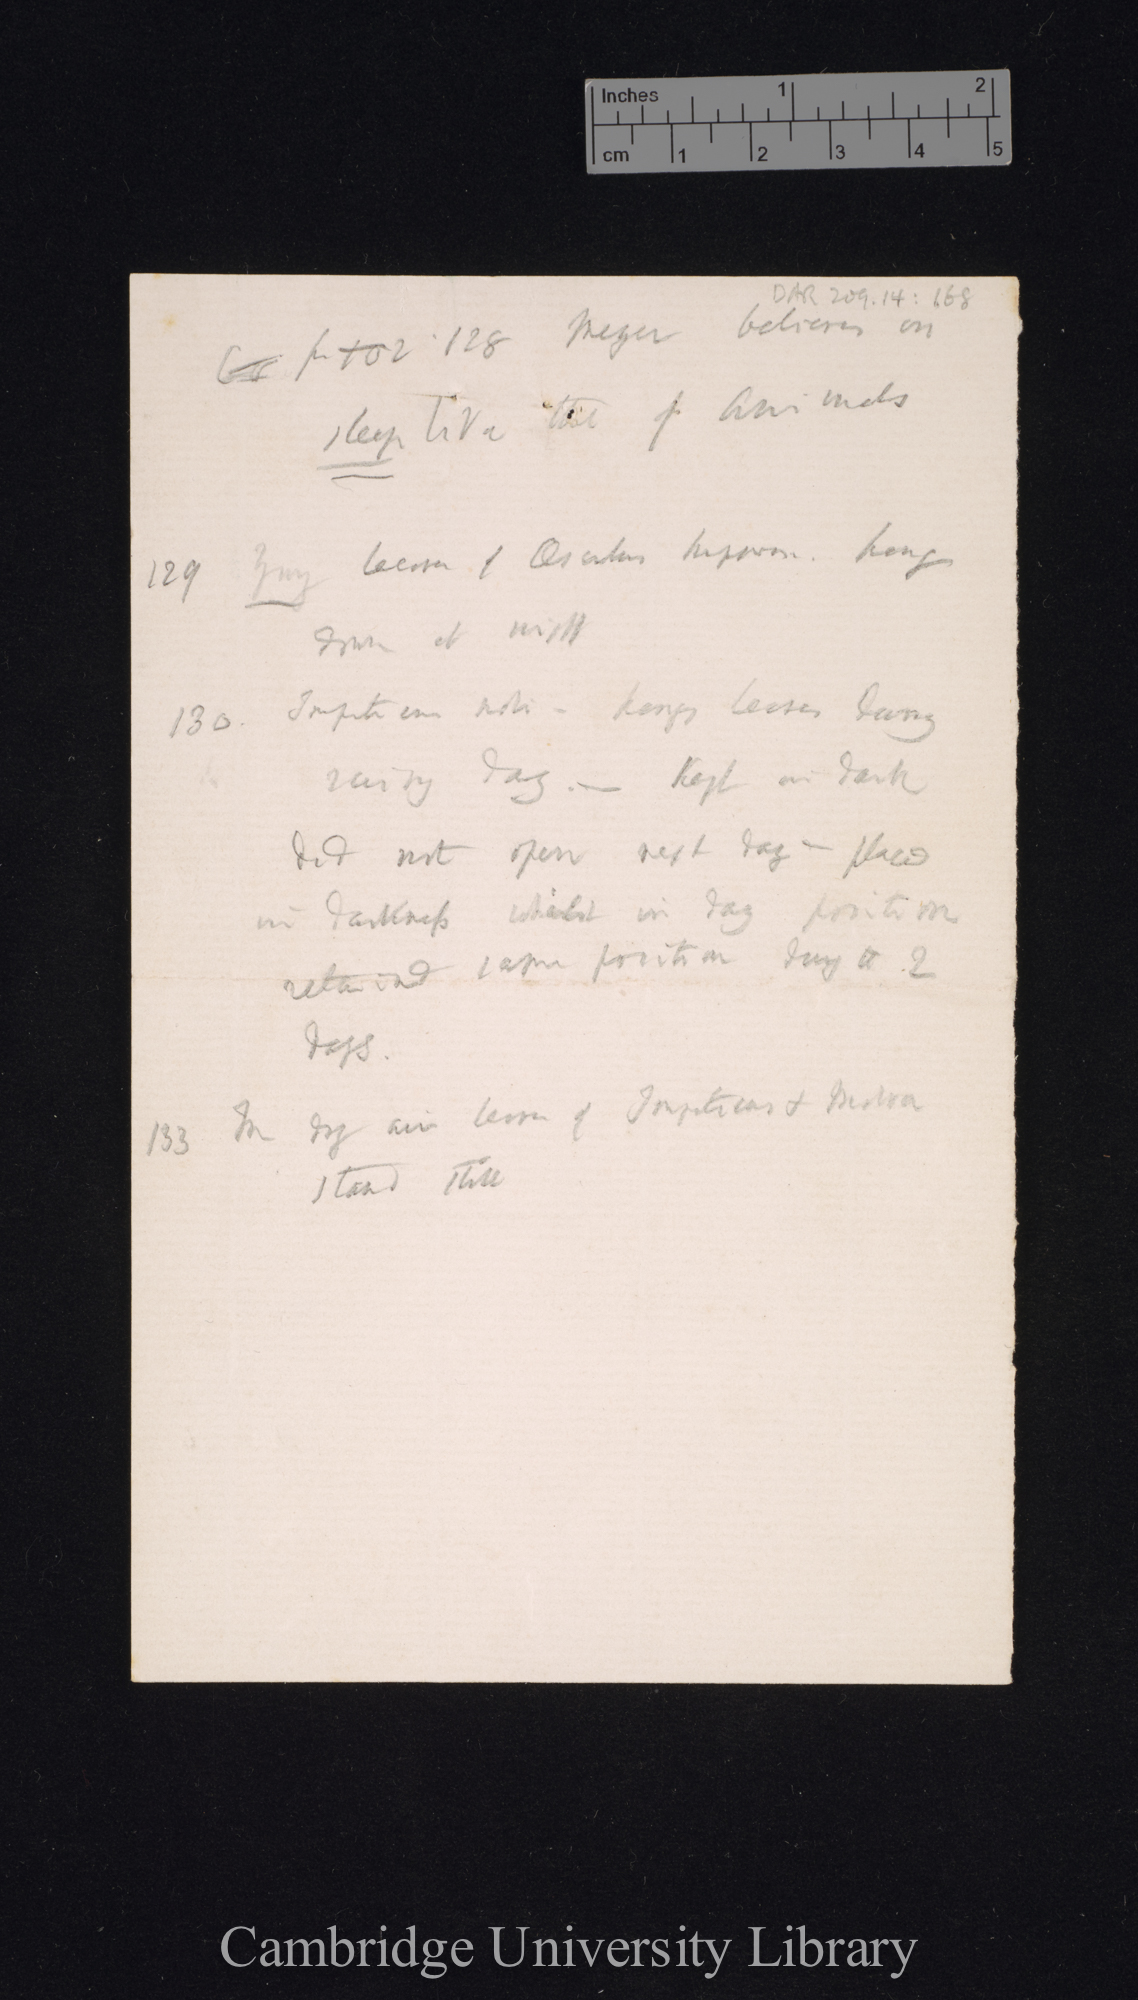 Inches 1 2
cm 1 2 3 4 5
DAR 209.14: 168
128 Meyer believes in
sleep like that of animals
129 Young leaves of hang
down at night
130. Impatiens noli - hangs leaves during
rainy day. — Kept in dark
did not open next day — placed
in darkness whilst in day position
retained same position during 2
days.
133 In dry air leaves of Impatiens &
stand still
Cambridge University Library